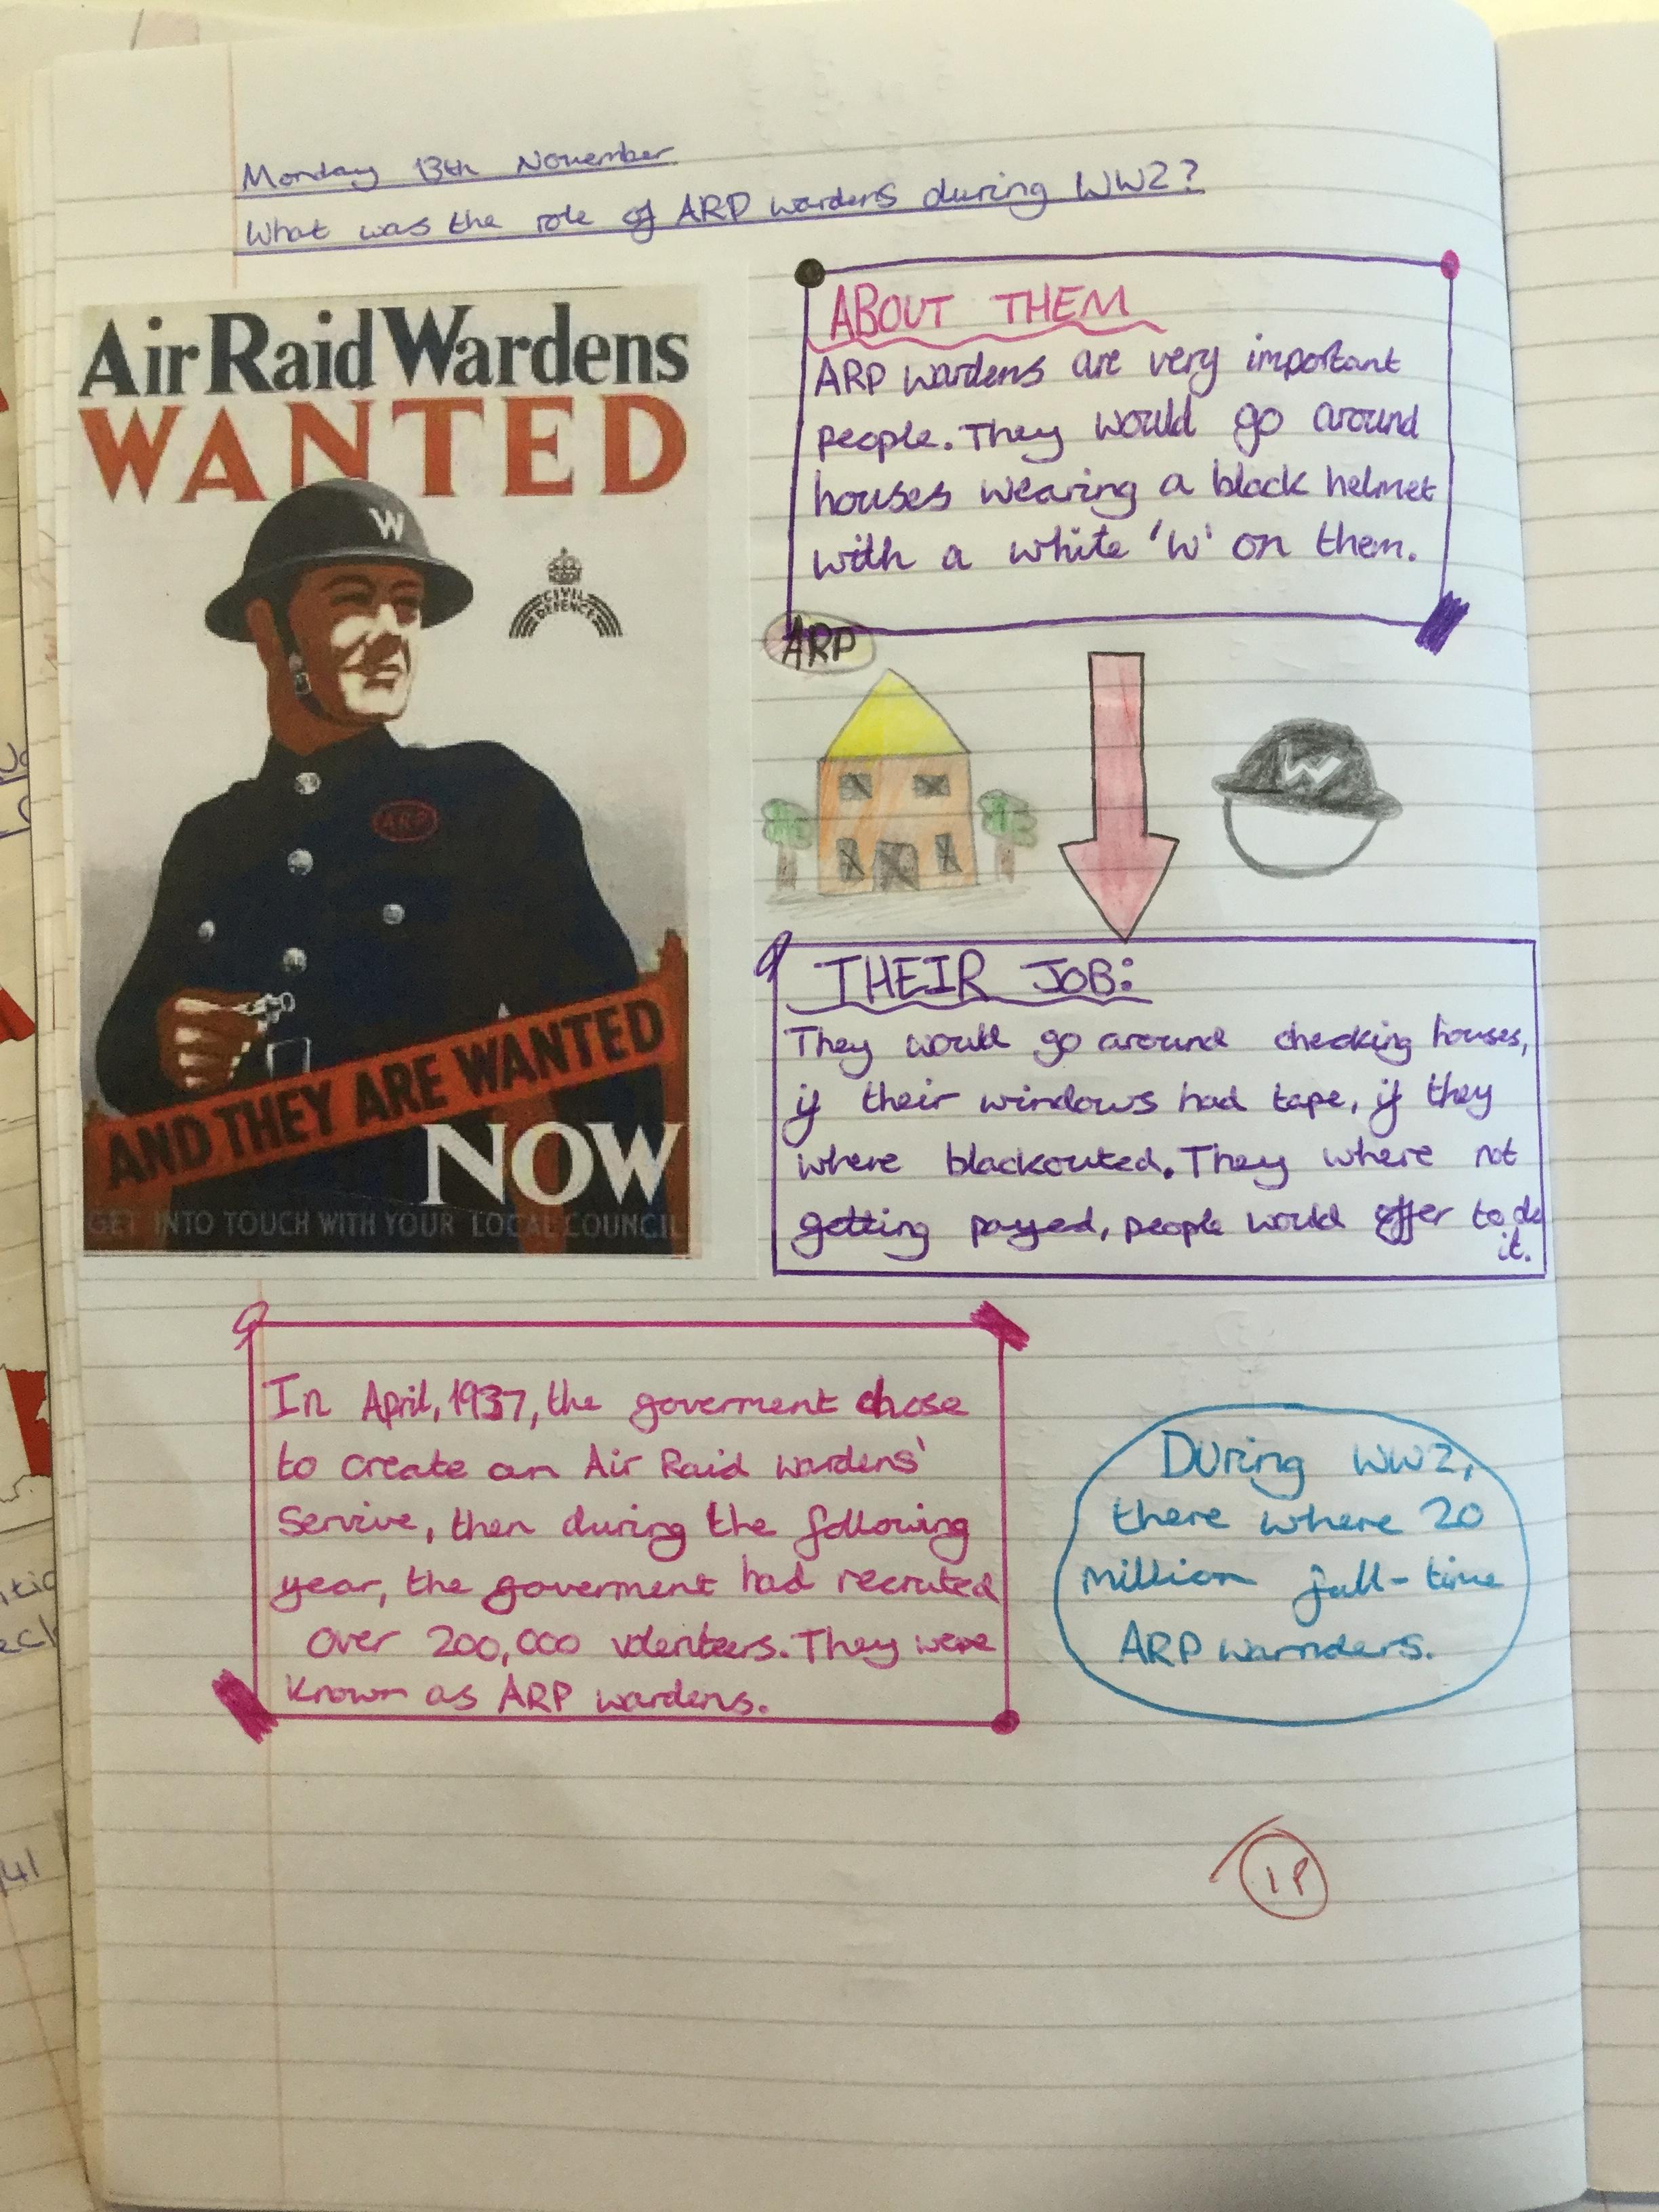 Monday 13th November
What was the role of ARP wardens during WW2?
Air Raid Wardens
WANTED
W
CIVIL
DEFENCE
ARP
AND THEY ARE WANTED
NOW
GET INTO TOUCH WITH YOUR LOCAL COUNCIL
ABOUT THEM
ARP wardens are very important
people. They would go around
houses wearing a black helmet
with a white 'W' on them.
ARP
W
THEIR JOB:
They would go around checking houses,
if their windows had tape, if they
where blackouted. They where not
getting payed, people would offer to do
it.
In April, 1937, the goverment chose
to create an Air Raid wardens'
Servive, then during the following
year, the goverment had recruted
over 200,000 volenteers. They were
known as ARP wardens.
During WW2,
there where 20
million full-time
ARP warnders.
1P